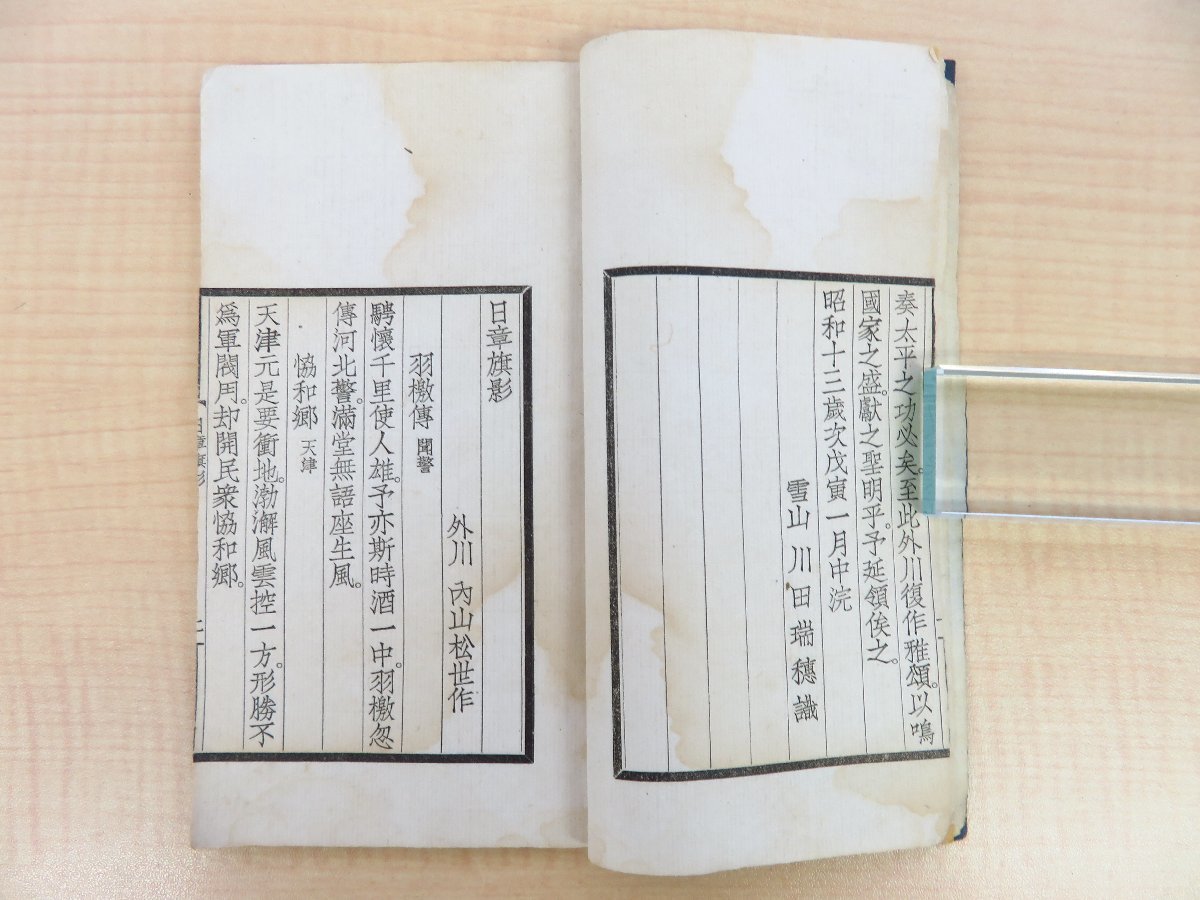 奏太平之功必矣。至此外川復作雅頌。以鳴
國家之盛。獻之聖明乎。予延領俟之。
昭和十三歲次戊寅一月中浣
雪山 川田瑞穗識
日章旗影
外川 內山松世作
羽檄傳 聞警
騁懷千里使人雄。予亦斯時酒一中。羽檄忽
傳河北警。滿堂無語座生風。
協和鄉 天津
天津元是要衝地。渤澥風雲控一方。形勝不
爲軍閥用。却開民衆協和鄉。
日章旗影